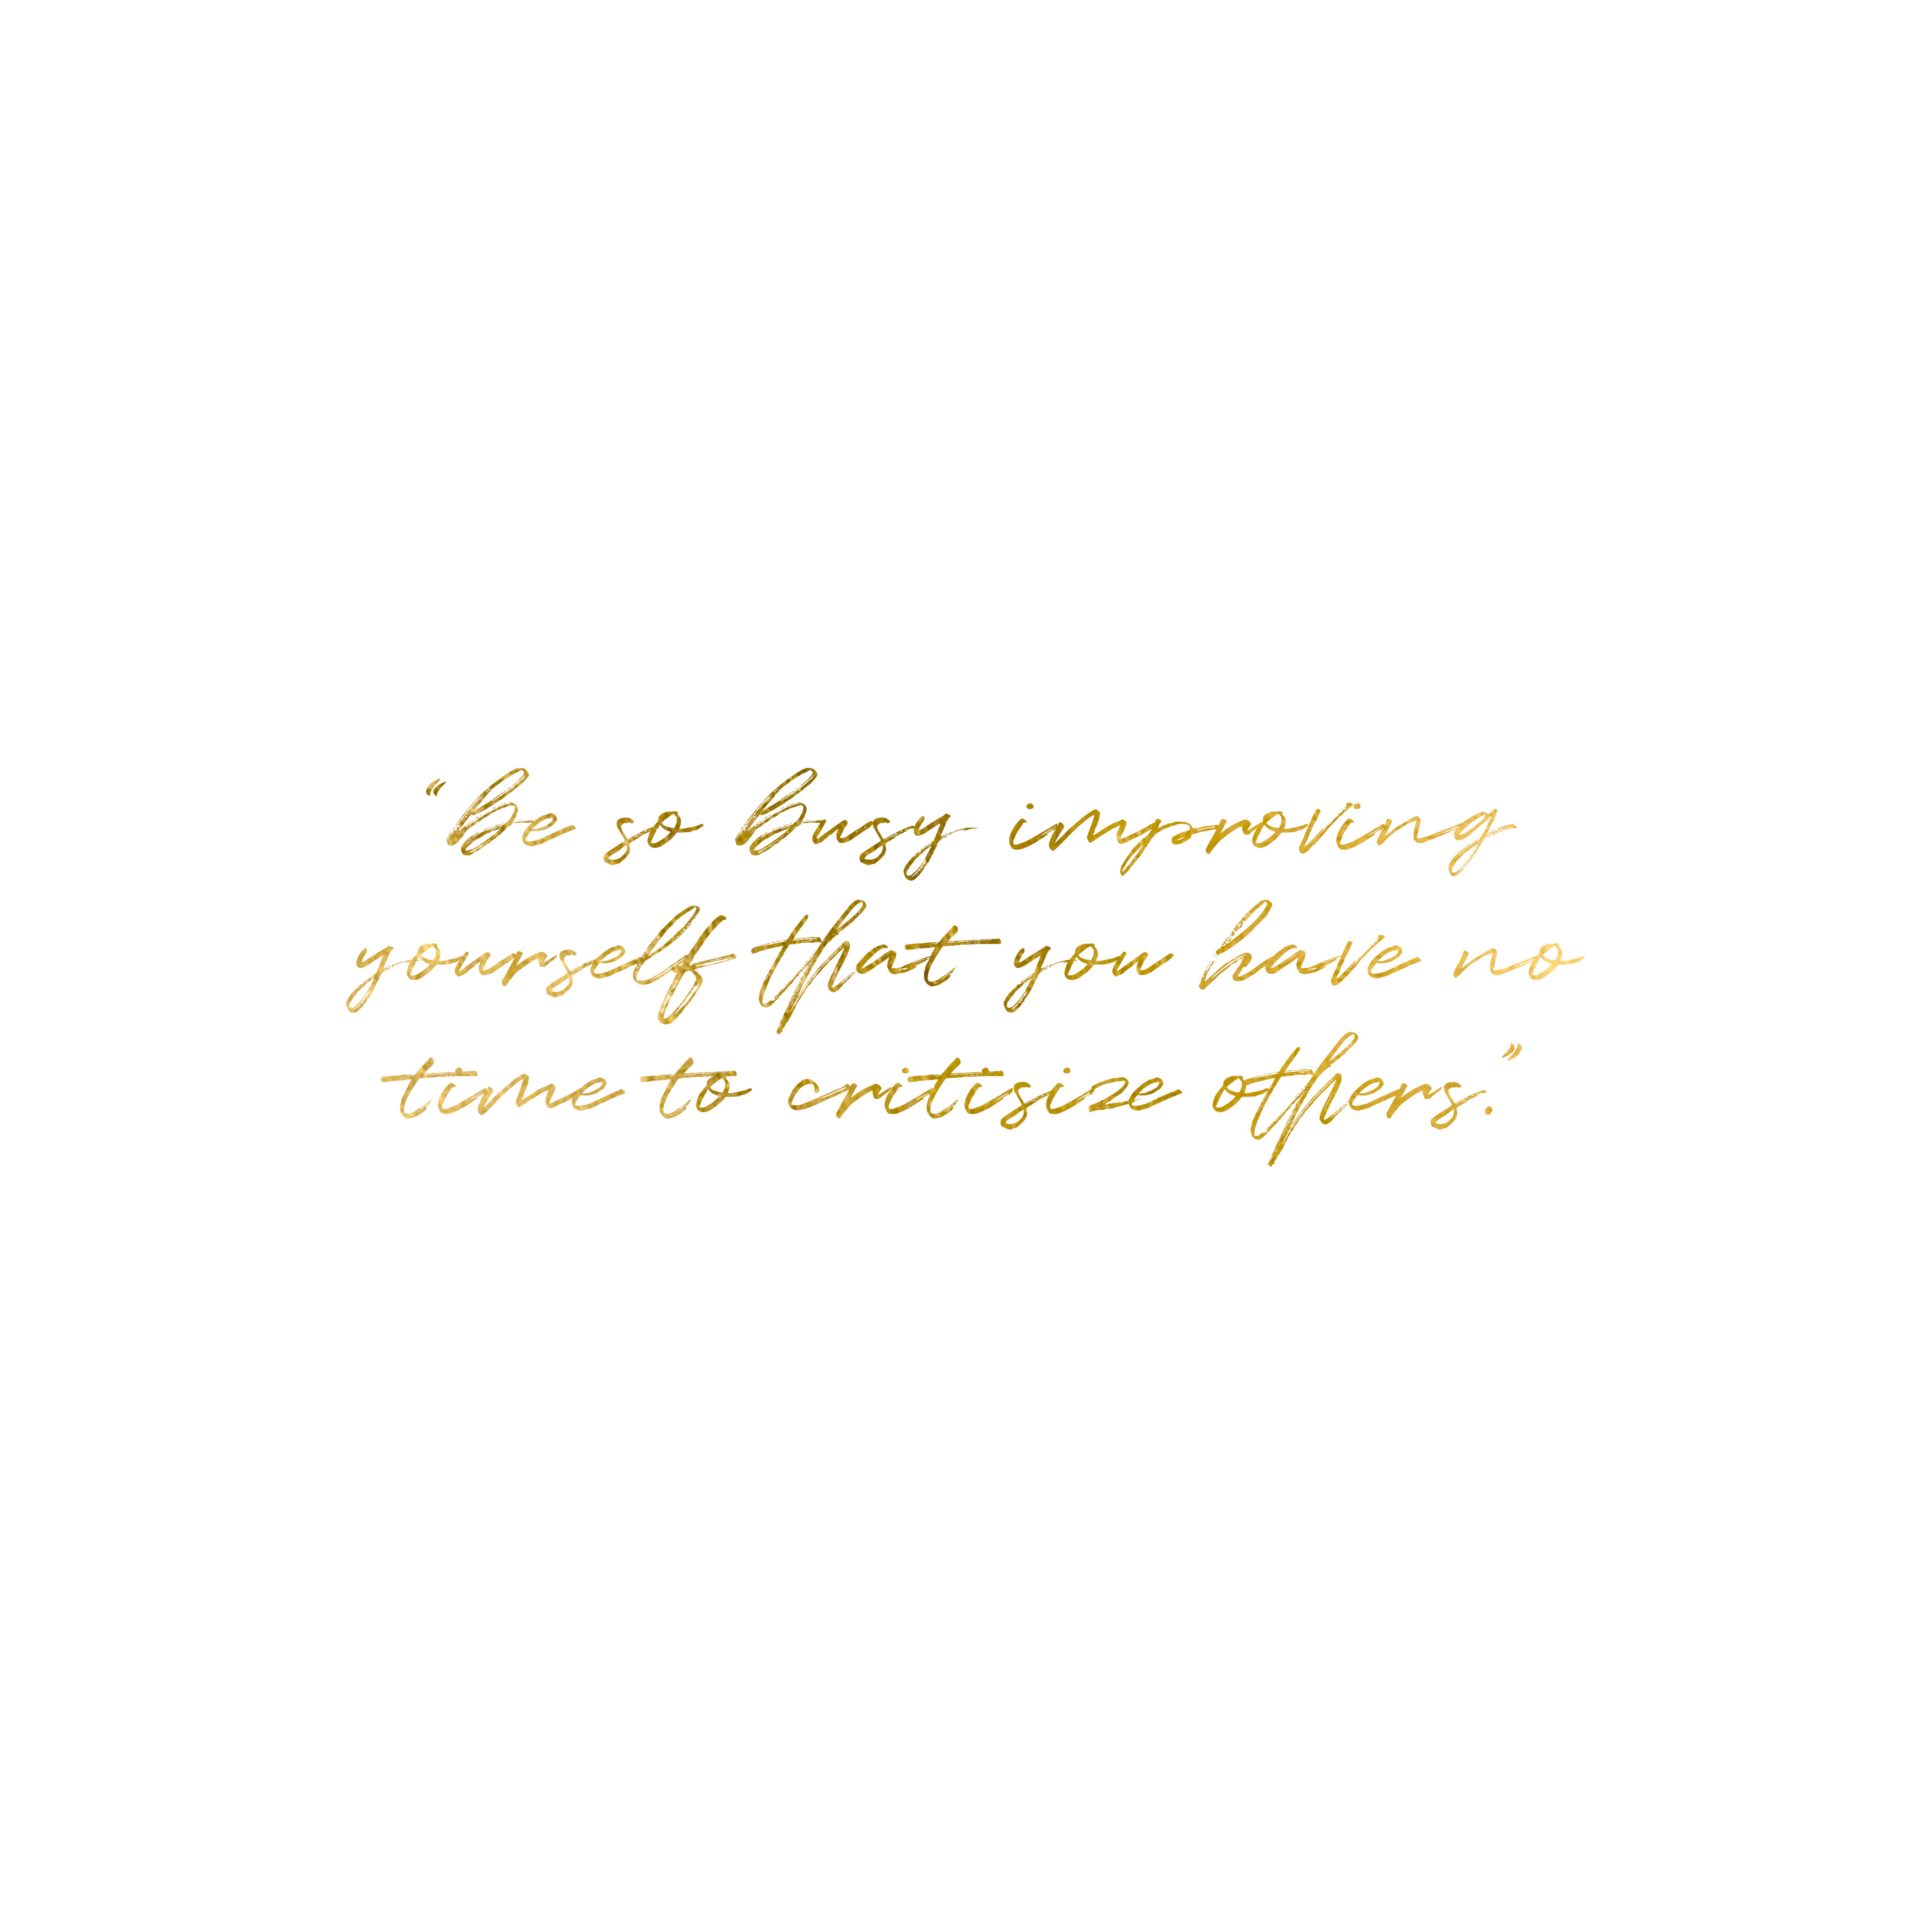 “be so busy improving
yourself that you have no
time to critisize others.”